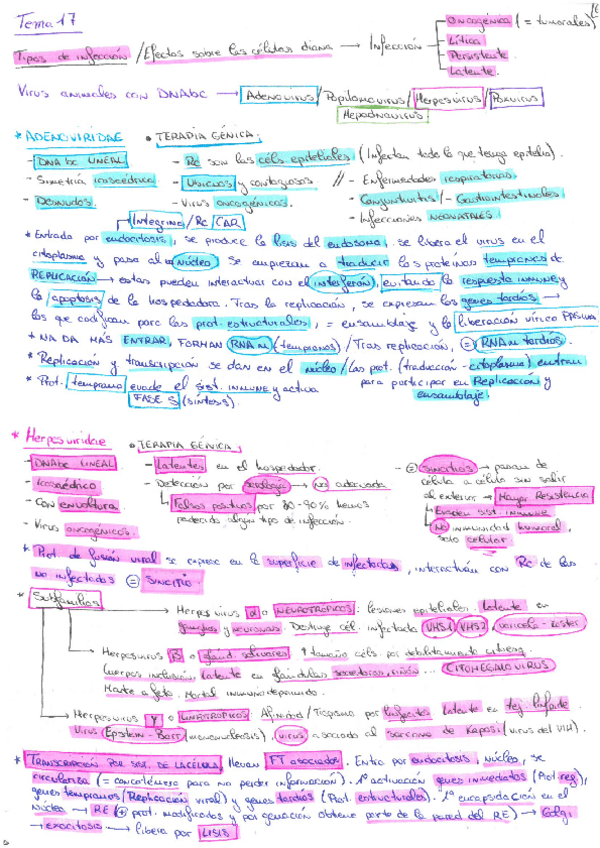 Tema 17
Tipos de infección / Efectos sobre las células diana → Infección
Oncogénica (= tumorales)
Lítica
Persistente
Latente.
Virus animales con DNAbc → Adenovirus / Papilomavirus / Herpesvirus / Poxvirus
Hepadnavirus
* ADENOVIRIDAE • TERAPIA GÉNICA.
- DNAbc LINEAL - Rc son las céls epiteliales (Infectan todo lo que tenga epitelio).
- Simetría icosaédrica - Ubicuos y contagiosos // - Enfermedades respiratorias.
- Desnudos. - Virus oncogénicos. - Conjuntivitis / - Gastrointestinales.
- Infecciones NEONATALES
Integrina / Rc CAR
* Entrada por endocitosis, se produce la lisis del endosoma, se libera el virus en el
citoplasma y pasa al núcleo. Se empiezan a traducir las proteínas tempranas de
REPLICACIÓN → estas pueden interactuar con el interferón, evitando la respuesta inmune y
la apoptosis de la hospedadora. Tras la replicación, se expresan los genes tardíos →
los que codifican para las prot. estructurales, = ensamblaje y la liberación vírica PASIVA
* NADA MÁS ENTRAR, FORMAN RNAm (tempranos) / Tras replicación, = RNAm tardíos.
* Replicación y transcripción se dan en el núcleo / Las prot. (traducción - citoplasma) entran
para participar en Replicación y
ensamblaje.
* Prot. temprana evade el sist. inmune y activa
FASE S (síntesis).
* Herpesviridae • TERAPIA GÉNICA.
- DNAbc LINEAL. - Latentes en el hospedador.
- Icosaédrico - Detección por serología → no adecuada
- Con envoltura. Falsos positivos por 80-90% hemos
- Virus oncogénicos. padecido algún tipo de infección.
- = Sincitios → pasan de
célula a célula sin salir
al exterior → Mayor Resistencia
Evaden sist. inmune
No inmunidad humoral,
solo celular.
* Prot. de fusión viral se expresa en la superficie de infectadas, interactúan con Rc de las
no infectadas = SINCITIO.
* Subfamilias
→ Herpesvirus α o NEUROTROPICOS: lesiones epiteliales. Latente en
ganglios y neuronas. Destruye cél. infectada VHS1 VHS2, varicela-zoster
→ Herpesvirus β o gland. salivares ↑ tamaño céls. por debilitamiento citoesq.
Cuerpos inclusión. Latente en glándulas secretoras, riñón... CITOMEGALOVIRUS
Madre a feto. Mortal inmunodeprimido.
→ Herpesvirus γ o LINFOTROPICOS Afinidad / Tropismo por linfocitos Latente en tej. linfoide.
Virus Epstein-Barr (mononucleosis), virus asociado al sarcoma de Kaposi (virus del VIH).
* TRANSCRIPCIÓN POR SIST. DE LA CÉLULA, llevan FT asociados. Entra por endocitosis, núcleo, se
circulariza (= concatémero para no perder información). 1º activación genes inmediatos (Prot reg),
genes tempranos (Replicación viral) y genes tardíos (Prot. estructurales). 1ª encapsidación en el
núcleo → RE (+ prot. modificadas y por gemación obtiene parte de la pared del RE) → Golgi
→ exocitosis → libera por LISIS